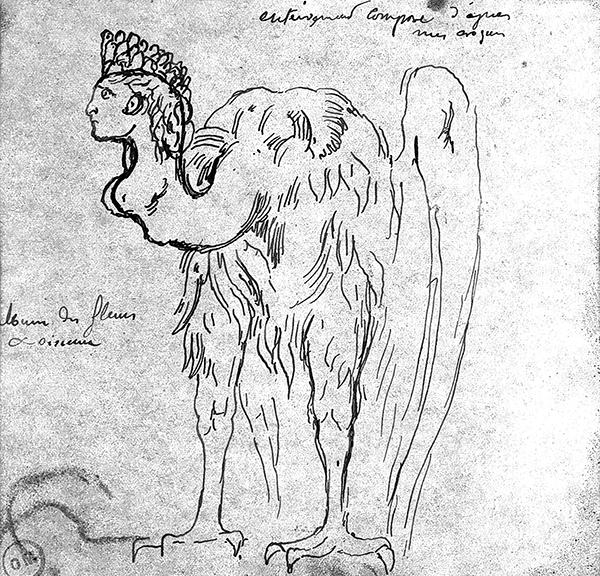 entièrement composé d'après
mes croquis
Album des fleurs
& oiseaux